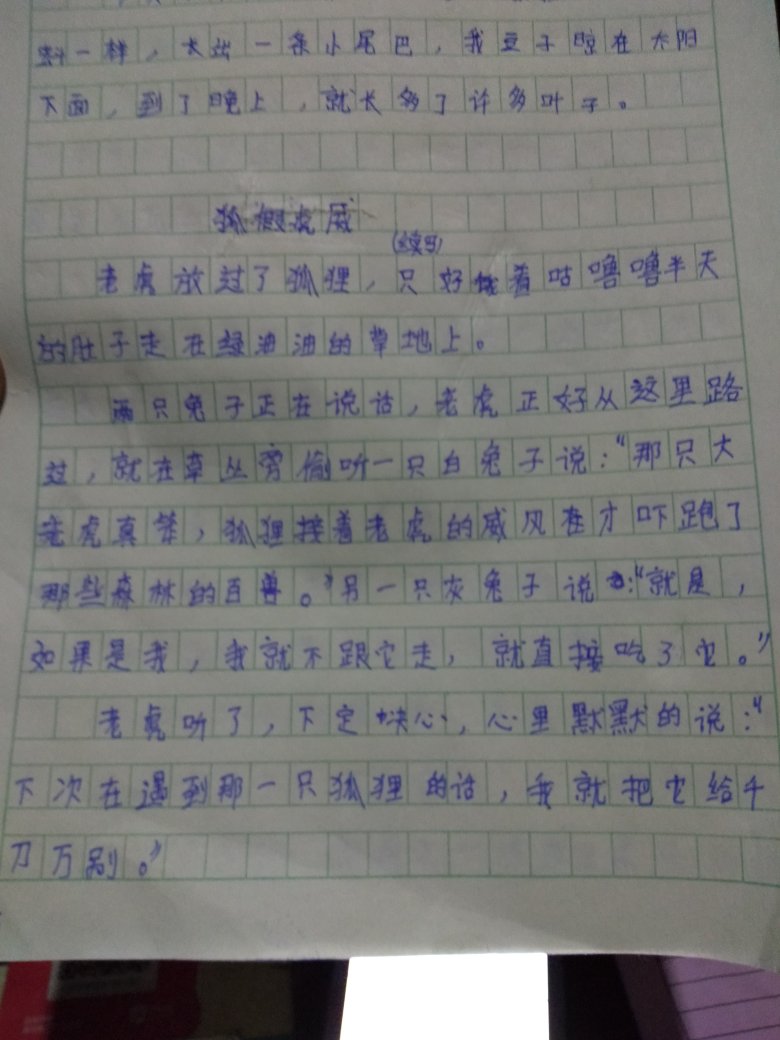 一样，长出一条小尾巴，我豆子晾在太阳
下面，到了晚上，就长多了许多叶子。
狐假虎威
(续写)
老虎放过了狐狸，只好饿着咕噜噜半天
的肚子走在绿油油的草地上。
两只兔子正在说话，老虎正好从这里路
过，就在草丛旁偷听一只白兔子说：“那只大
老虎真笨，狐狸接着老虎的威风在才吓跑了
那些森林的百兽。”另一只灰兔子说：“就是，
如果是我，我就不跟它走，就直接吃了它。”
老虎听了，下定决心，心里默默的说：“
下次在遇到那一只狐狸的话，我就把它给千
刀万剐。”